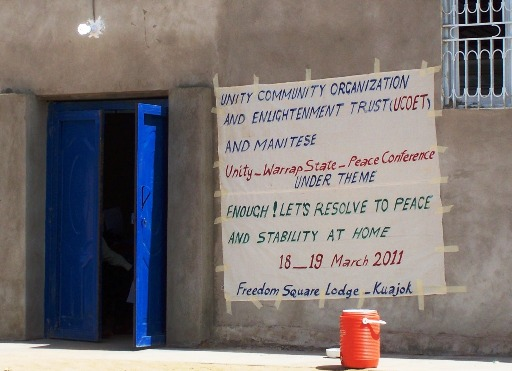 UNITY COMMUNITY ORGANIZATION
AND ENLIGHTENMENT TRUST (UCOET)
AND MANITESE
Unity - Warrap State - Peace Conference
UNDER THEME
ENOUGH! LET'S RESOLVE TO PEACE
AND STABILITY AT HOME
18_19 March 2011
Freedom Square Lodge - Kuajok